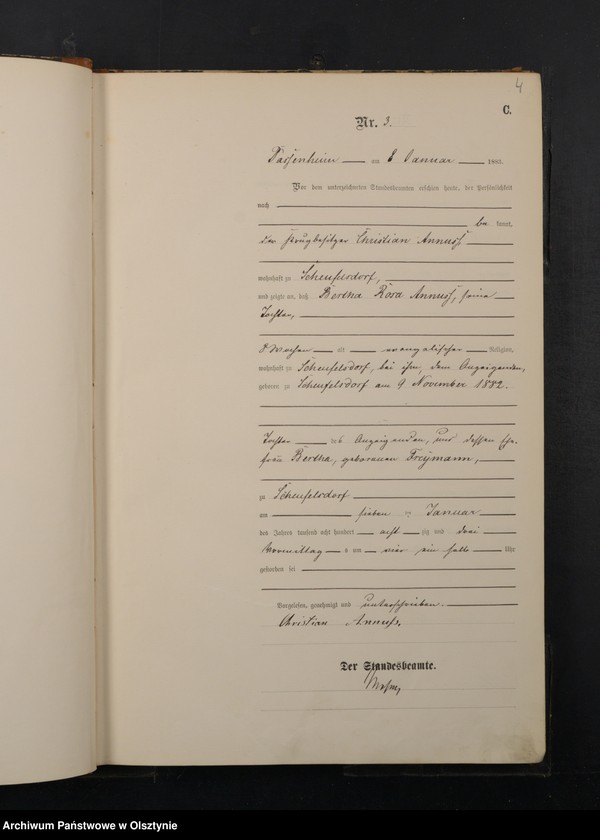 4
C.
Nr. 3.
Passenheim am 8 Januar 188
Vor dem unterzeichneten Standesbeamten erschien heute, der Persönlichkeit
nach
be kannt,
der Krugbesitzer Christian Annuss
wohnhaft zu Scheufelsdorf,
und zeigte an, daß Bertha Rosa Annuss, seine
Tochter,
8 Wochen alt evangelischer Religion,
wohnhaft zu Scheufelsdorf, bei ihm, dem Anzeigenden,
geboren zu Scheufelsdorf am 9 November 1882.
Tochter des Anzeigenden, und dessen Ehe-
frau Bertha, geborenen Freymann,
zu Scheufelsdorf
am sieben Januar
des Jahres tausend acht hundert acht zig und drei
Vormittag s um vier ein halb Uhr
gestorben sei
Vorgelesen, genehmigt und unterschrieben.
Christian Annuss.
Der Standesbeamte.
Archiwum Państwowe w Olsztynie